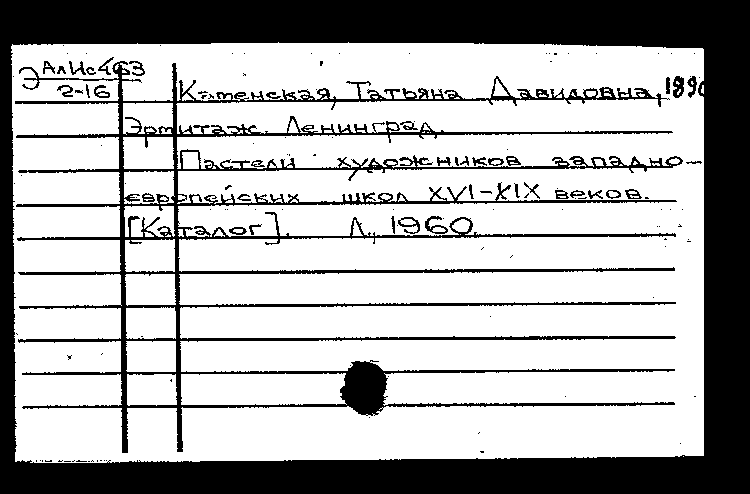 Э АлИс463
2-16
Каменская, Татьяна Давидовна, 1890
Эрмитаж. Ленинград.
Пастели художников западно-
европейских школ XVI-XIX веков.
[Каталог]. Л., 1960.